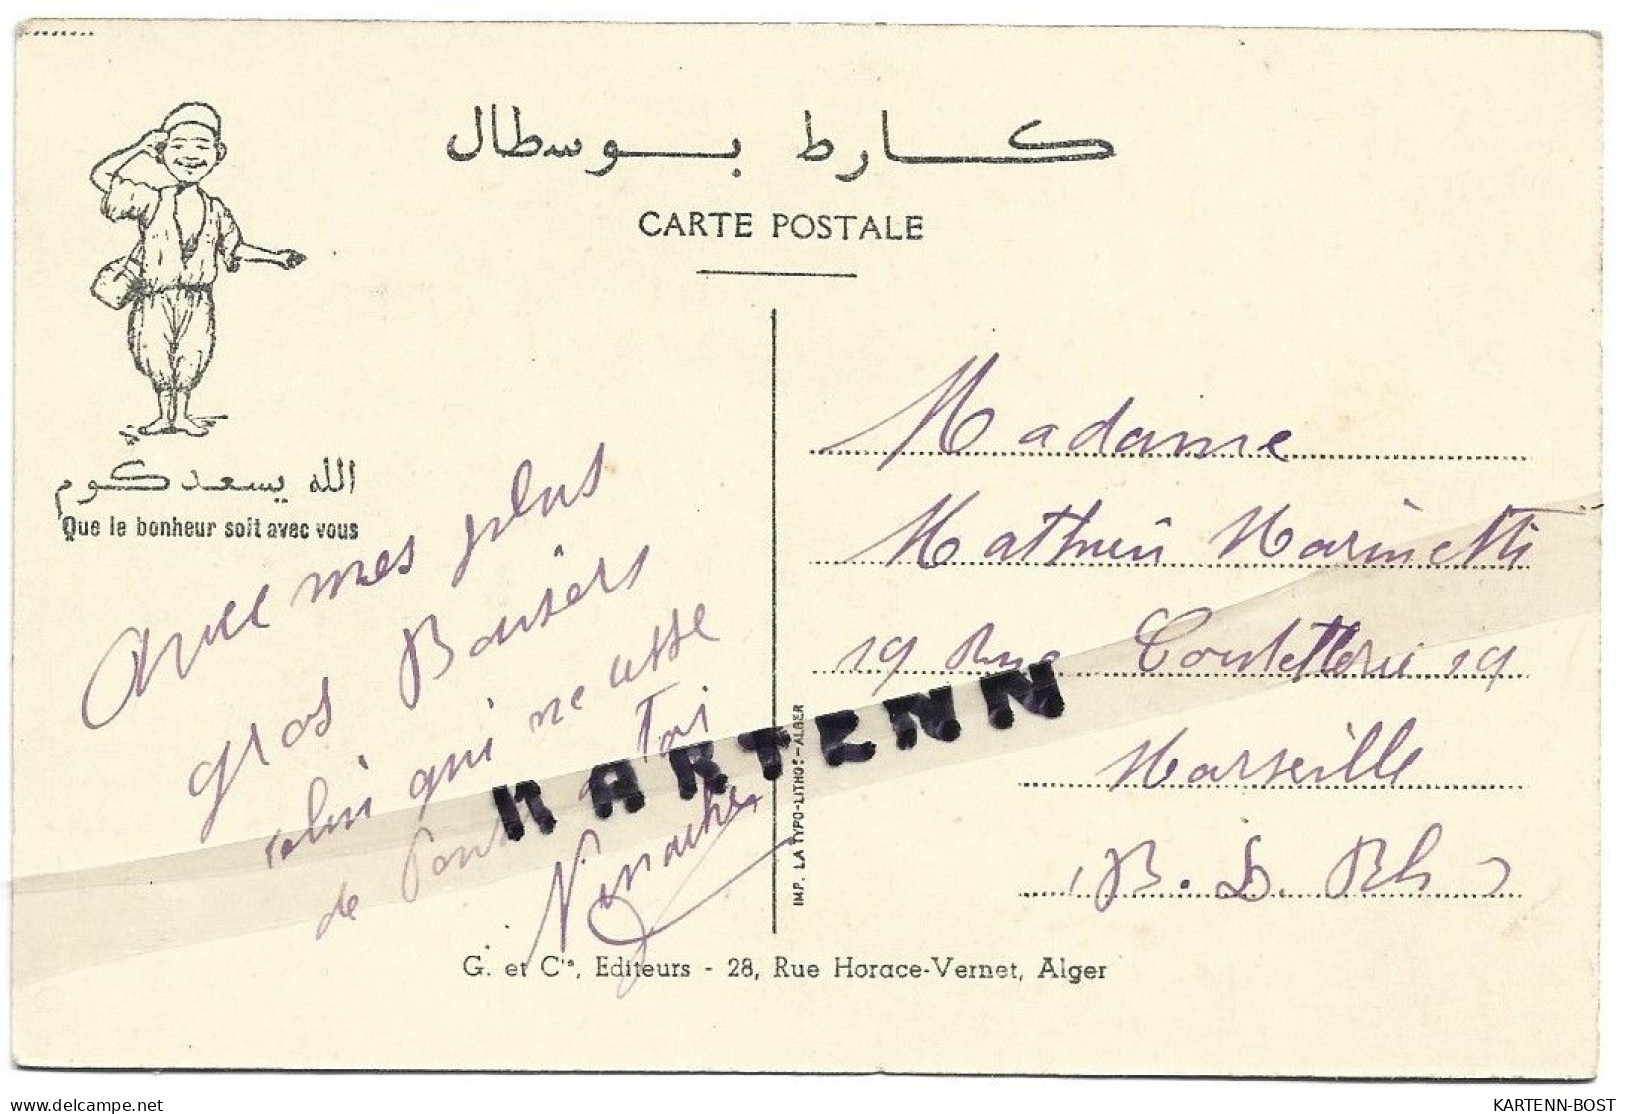 كارط بوسطال
CARTE POSTALE
الله يسعدكوم
Que le bonheur soit avec vous
Avec mes plus
gros Baisers
celui qui ne cesse
de Pensé a Toi
Madame
Mathieu Marinetti
19 Rue 19
Marseille
B. D. Rh
KARTENN
IMP. LA TYPO-LITHO - ALGER
G. et Cie, Editeurs - 28, Rue Horace-Vernet, Alger
https://www.delcampe.net
KARTENN-BOST